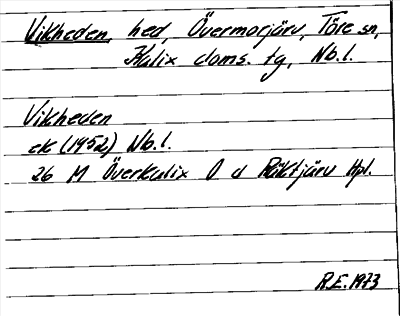 Vikheden, hed, Övermorjärv, Töre sn,
Kalix doms. tg, Nb.l.
Vikheden
ek (1952) Nb.l.
26 M Överkalix O d Räktjärv Hpl.
R.E. 1973